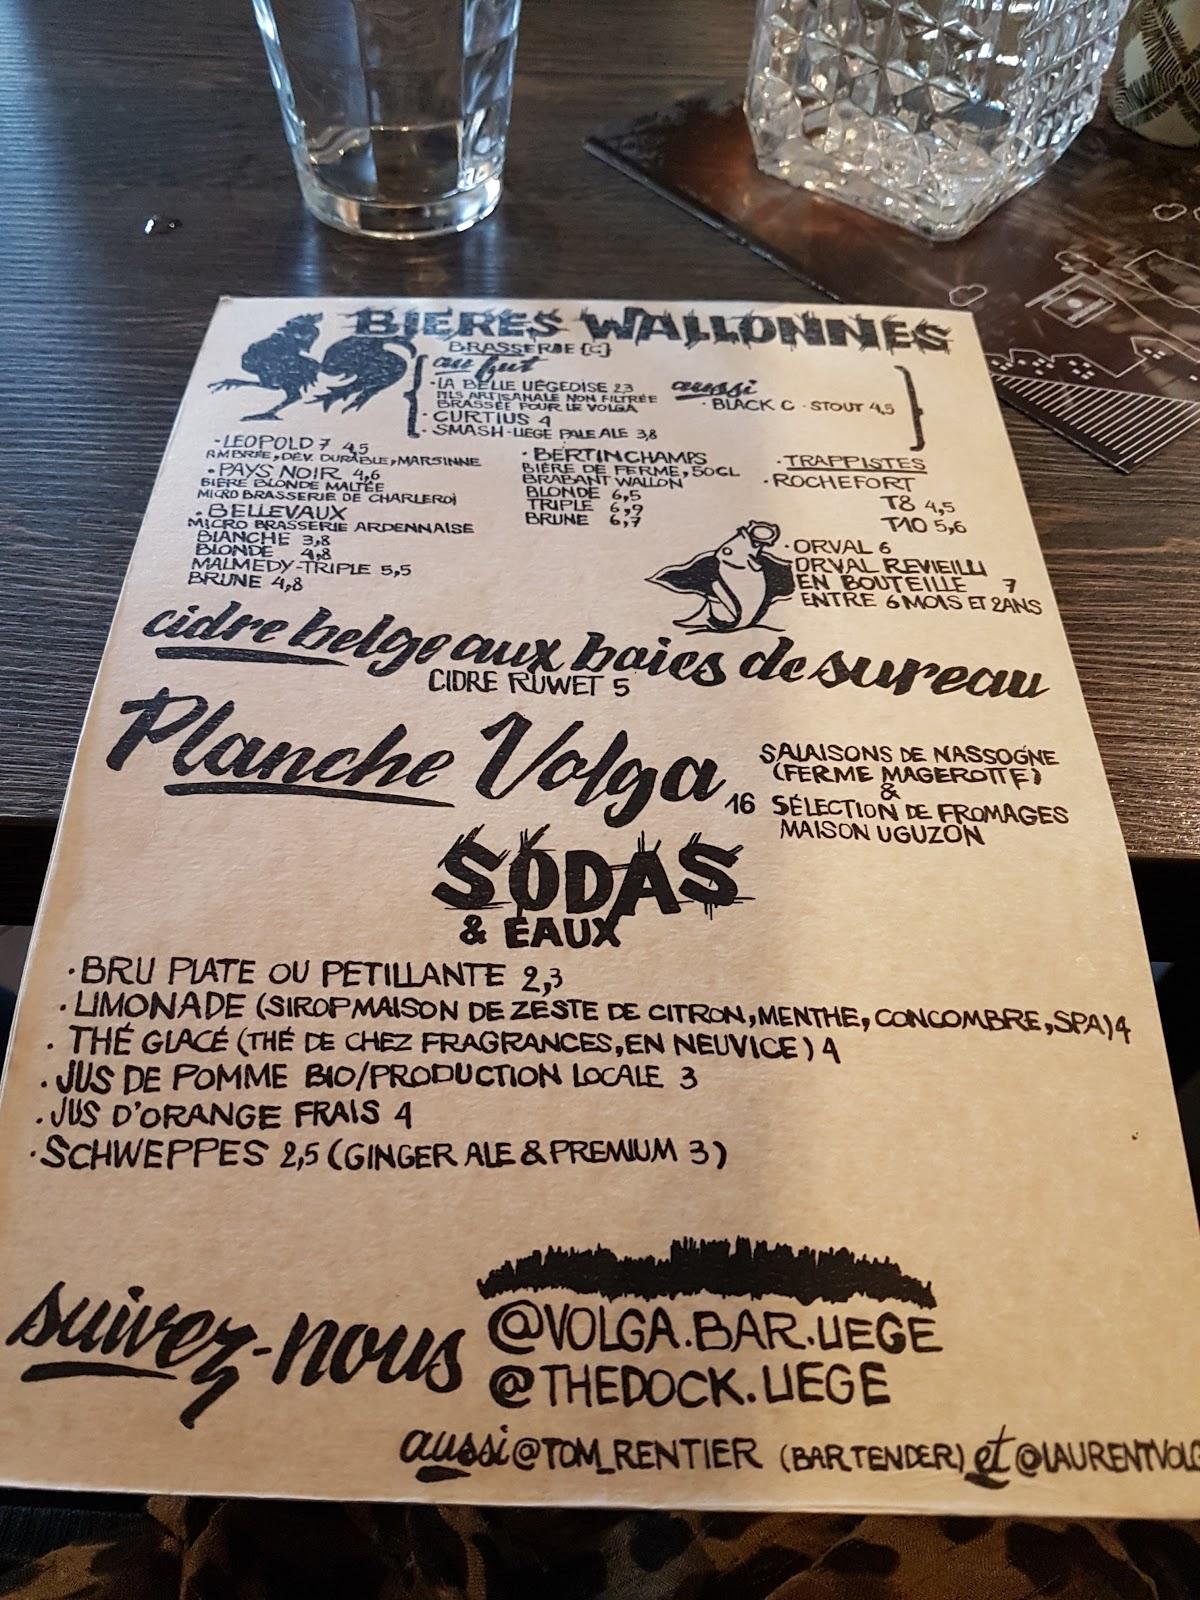 BIERES WALLONNES
BRASSERIE {C}
au fut
· LA BELLE LIÉGEOISE 2,3
FILS ARTISANALE NON FILTRÉE
BRASSÉE POUR LE VOLGA
· CURTIUS 4
· SMASH-LIEGE PALE ALE 3,8
aussi
· BLACK C - STOUT 4,5
· LEOPOLD 7 4,5
AMBRÉE, DÉV. DURABLE, MARSINNE
· PAYS NOIR 4,6
BIÈRE BLONDE MALTÉE
MICRO BRASSERIE DE CHARLEROI
· BELLEVAUX
MICRO BRASSERIE ARDENNAISE
BLANCHE 3,8
BLONDE 4,8
MALMEDY-TRIPLE 5,5
BRUNE 4,8
· BERTINCHAMPS
BIÈRE DE FERME, 50CL
BRABANT WALLON
BLONDE 6,5
TRIPLE 6,9
BRUNE 6,7
· TRAPPISTES
· ROCHEFORT
T8 4,5
T10 5,6
· ORVAL 6
ORVAL REVIEILLI
EN BOUTEILLE 7
ENTRE 6 MOIS ET 2ANS
cidre belge aux baies de sureau
CIDRE RUWET 5
Planche Volga 16
SALAISONS DE NASSOGNE
(FERME MAGEROTTE)
&
SÉLECTION DE FROMAGES
MAISON UGUZON
SODAS
& EAUX
· BRU PLATE OU PETILLANTE 2,3
· LIMONADE (SIROP MAISON DE ZESTE DE CITRON, MENTHE, CONCOMBRE, SPA) 4
· THÉ GLACÉ (THÉ DE CHEZ FRAGRANCES, EN NEUVICE) 4
· JUS DE POMME BIO/PRODUCTION LOCALE 3
· JUS D'ORANGE FRAIS 4
· SCHWEPPES 2,5 (GINGER ALE & PREMIUM 3)
suivez-nous
@VOLGA.BAR.LIEGE
@THEDOCK.LIEGE
aussi @TOM_RENTIER (BARTENDER) et @LAURENTVOLG